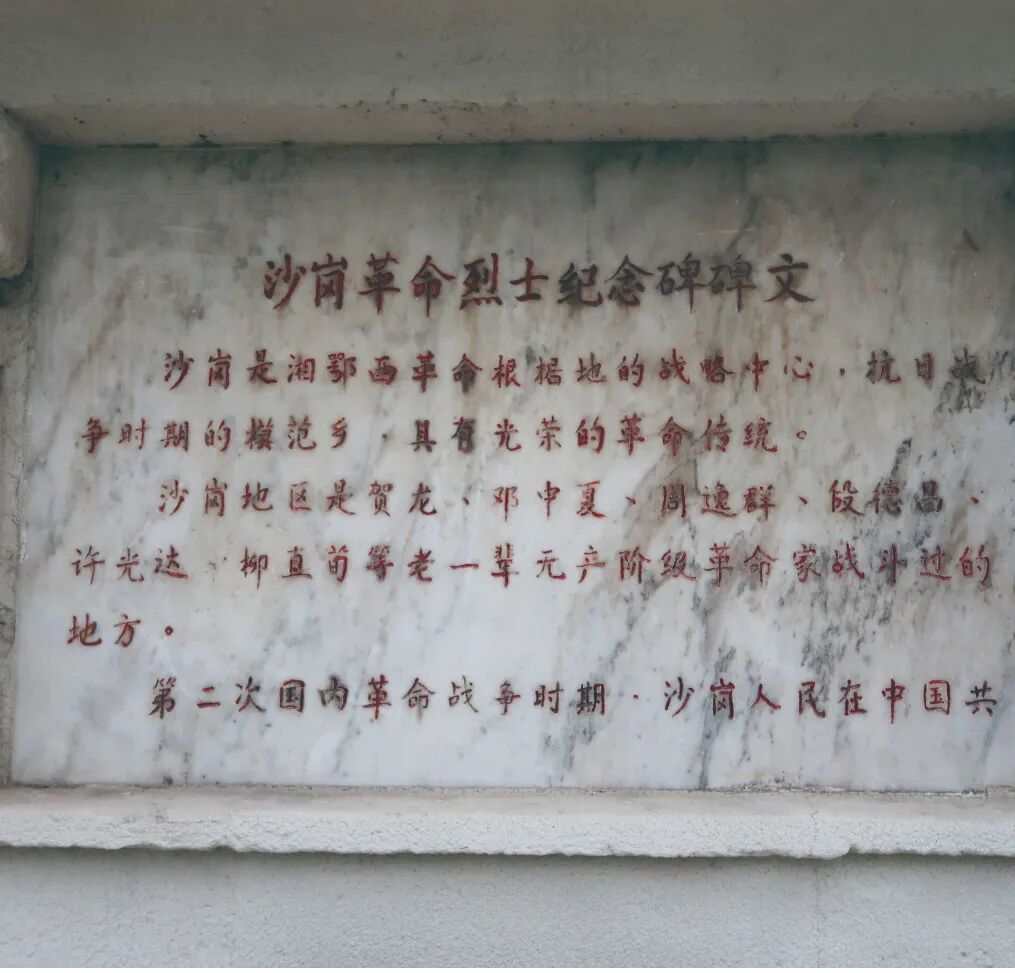 沙岗革命烈士纪念碑碑文
沙岗是湘鄂西革命根据地的战略中心，抗日战
争时期的模范乡，具有光荣的革命传统。
沙岗地区是贺龙、邓中夏、周逸群、段德昌、
许光达、柳直荀等老一辈无产阶级革命家战斗过的
地方。
第二次国内革命战争时期，沙岗人民在中国共